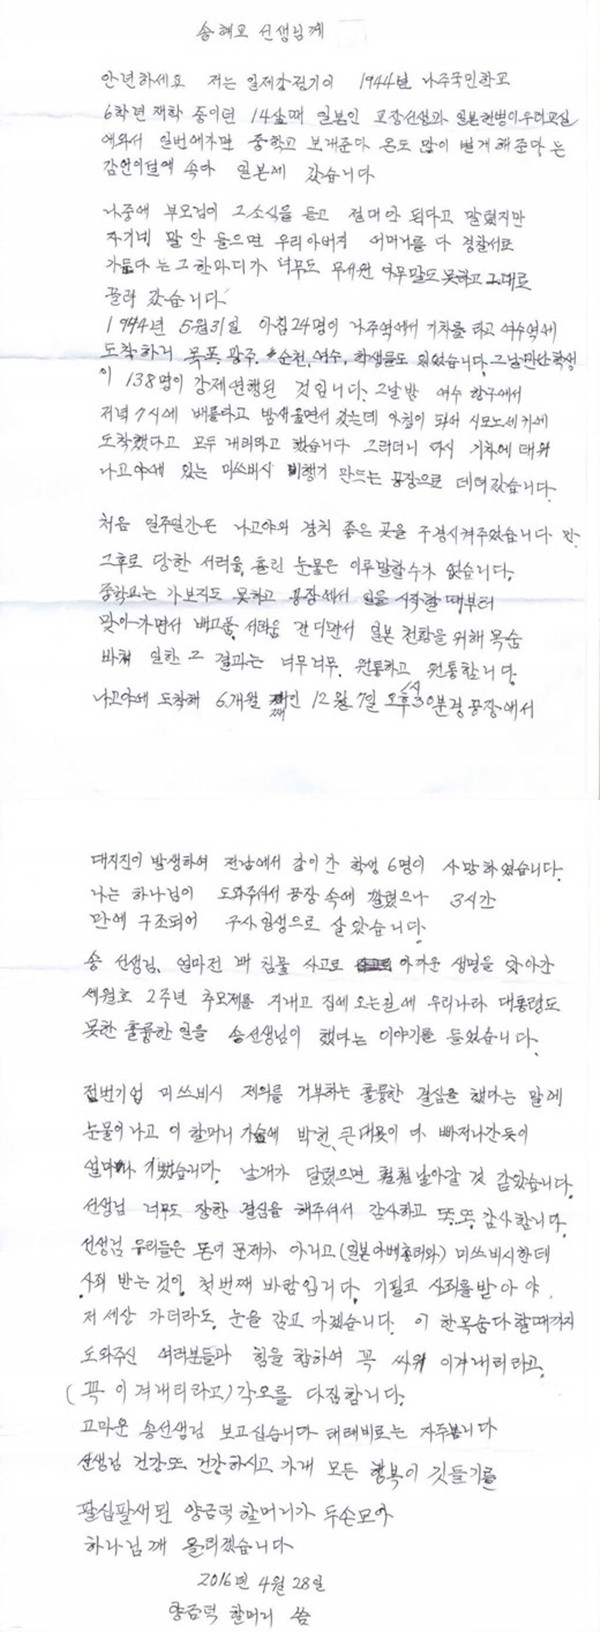 송혜교 선생님께
안녕하세요 저는 일제강점기인 1944년 나주국민학교
6학년 재학 중이던 14살때 일본인 교장선생과 일본헌병이 우리교실
에와서 일번에가면 중학고 보개준다 온도 많이 벌게 해준다 는
감언이설에 속아 일본제 갔습니다
나중에 부모님이 그소식을 듣고 절대안 된다고 말렸지만
자기네 말 안 들으면 우리아버지 어머니를 다 경찰서로
가둔다 는 그 한마디가 너무도 무서워 아무말도 못하고 그대로
끌려 갔습니다.
1944년 5월31일 아침 24명이 나주역에서 기차를 타고 여수역에
도착하니 목포, 광주, 순천, 여수, 학생들도 있었습니다. 그날만난학생
이 138명이 강제연행된 것입니다. 그날밤 여수 항구에서
저녁 7시에 배를타고 밤새 울면서 갔는데 아침이 돼서 시모노세키에
도착했다고 모두 내리라고 했습니다 그러더니 다시 기차에 태워
나고야에 있는 미쓰비시 비행기 만드는 공장으로 데려갔습니다.
처음 일주일간은 나고야의 경치 좋은 곳을 구경시켜주었습니다 만
그후로 당한 서러움, 흘린 눈물은 이루말할수가 없습니다.
중학교는 가보지도 못하고 공장에서 일을 시작할 때부터
맞아 가면서 배고픔, 서러움 견디면서 일본 천황을 위해 목숨
바쳐 일한 그 결과는 너무너무. 원통하고 원통합니다.
나고야에 도착해 6개월 째인 12월 7일 오후 1시 30분경 공장에서
대지진이 발생하여 전남에서 같이 간 학생 6명이 사망하였습니다.
나는 하나님이 도와주셔서 공장 속에 깔렸으나 3시간
만에 구조되어 구사일생으로 살았습니다.
송 선생님, 얼마전 배 침몰 사고로 아까운 생명을 앗아간
세월호 2주년 추모제를 지내고 집에 오는길에 우리나라 대통령도
못한 훌륭한 일을 송선생님이 했다는 이야기를 들었습니다.
전번기업 미쓰비시 제의를 거부하는 훌륭한 결심을 했다는 말에
눈물이 나고 이 할머니 가슴에 박힌 큰 대못이 다 빠져나간듯이
얼마나 기뻤습니다. 날개가 달렸으면 훨훨 날아갈 것 같았습니다.
선생님 너무도 장한 결심을 해주셔서 감사하고 또, 또, 감사합니다.
선생님 우리들은 돈이 문제가 아니고 (일본아베총리와) 미쓰비시한테
사죄 받는 것이 첫번째 바람입니다. 기필코 사죄를 받아야
저 세상 가더라도 눈을 감고 가겠습니다. 이 한목숨 다 할때까지
도와주신 여러분들과 힘을 합하여 꼭 싸워 이겨내리라고
(꼭 이겨내리라고) 각오를 다집합니다.
고마운 송선생님 보고십습니다 태래비로는 자주봅니다
선생님 건강또 건강하시고 가개 모든 행복이 깃들기를
팔십팔새된 양금덕 할머리가 두손모아
하나님깨 올리겠습니다
2016년 4월 28일
양금덕 할머리 씀